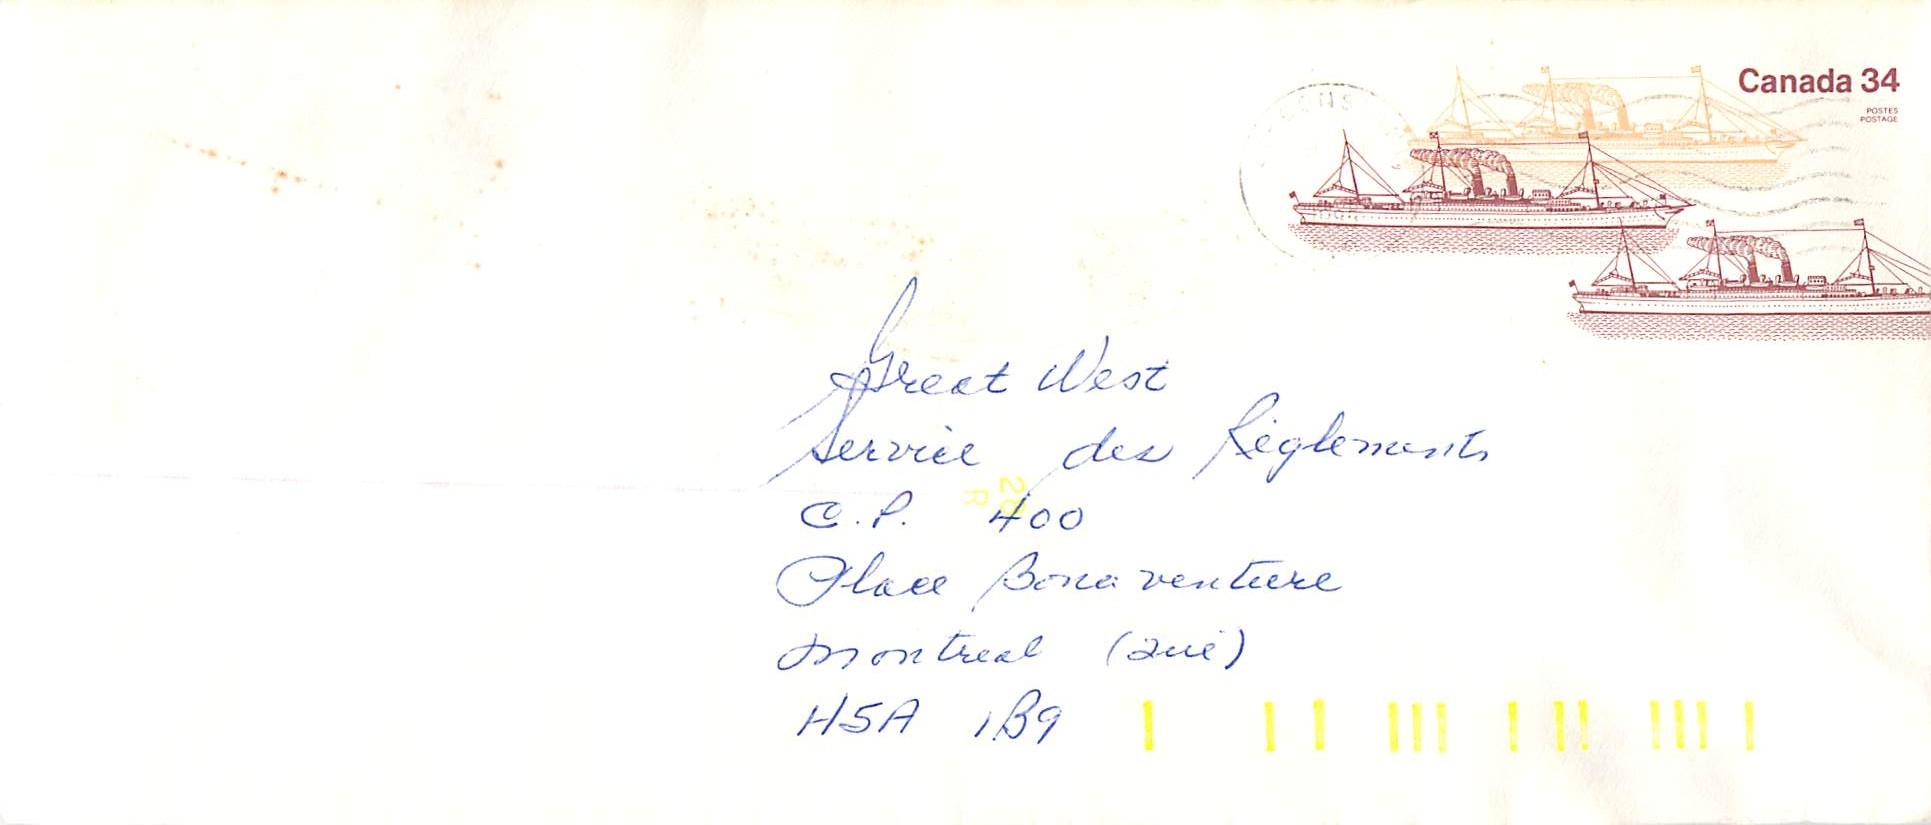 Canada 34
POSTES
POSTAGE
Great West
Service des Règlements
C.P. 400
Place Bonaventure
Montreal (Qué)
H5A 1B9